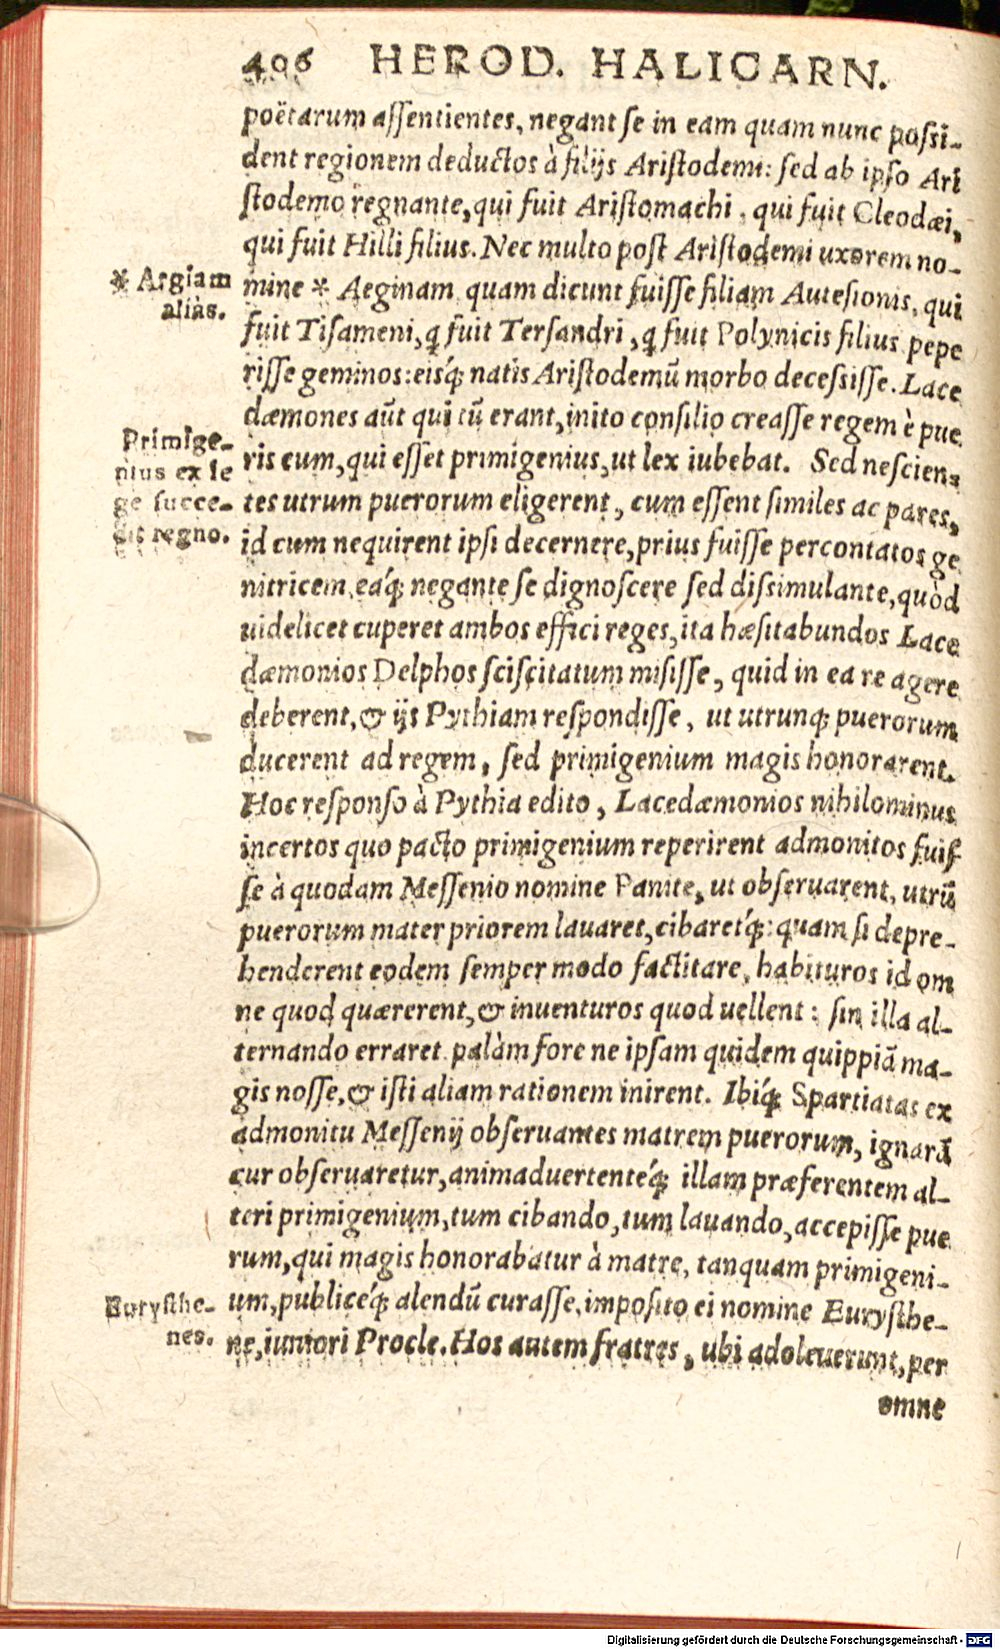 406 HEROD. HALICARN.
poëtarum assentientes, negant se in eam quam nunc possi-
dent regionem deductos à filijs Aristodemi: sed ab ipso Ari
stodemo regnante, qui fuit Aristomachi, qui fuit Cleodæi,
qui fuit Hilli filius. Nec multo post Aristodemi uxorem no-
* Argiam
aliàs.
mine * Aeginam quam dicunt fuisse filiam Autesionis, qui
fuit Tisameni, q̃ fuit Tersandri, q̃ fuit Polynicis filius pepe
risse geminos: eisq́; natis Aristodemũ morbo decessisse. Lace
dæmones aũt qui tũ erant, inito consilio creasse regem è pue
Primige-
nius ex le
ge succe-
dit regno.
ris eum, qui esset primigenius, ut lex iubebat. Sed nescien-
tes utrum puerorum eligerent, cum essent similes ac pares,
id cum nequirent ipsi decernere, prius fuisse percontatos ge
nitricem, eáq; negante se dignoscere sed dissimulante, quòd
uidelicet cuperet ambos effici reges, ita hæsitabundos Lace
dæmonios Delphos sciscitatum misisse, quid in ea re agere
deberent, & ijs Pythiam respondisse, ut utrunq; puerorum
ducerent ad regem, sed primigenium magis honorarent.
Hoc responso à Pythia edito, Lacedæmonios nihilominus
incertos quo pacto primigenium reperirent admonitos fuis
se à quodam Messenio nomine Panite, ut obseruarent, utrũ
puerorum mater priorem lauaret, cibaretq́;: quam si depre-
henderent eodem semper modo factitare, habituros id om
ne quod quærerent, & inuenturos quod uellent: sin illa al-
ternando erraret palàm fore ne ipsam quidem quippiã ma-
gis nosse, & isti aliam rationem inirent. Ibiq́; Spartiatas ex
admonitu Messenij obseruantes matrem puerorum, ignarã
cur obseruaretur, animaduertenteq́; illam præferentem al-
teri primigenium, tum cibando, tum lauando, accepisse pue
rum, qui magis honorabatur à matre, tanquam primigeni-
Eurysthe-
nes.
um, publiceq́; alendũ curasse, imposito ei nomine Eurysthe-
ne, iuniori Procle. Hos autem fratres, ubi adoleuerunt, per
omne
Digitalisierung gefördert durch die Deutsche Forschungsgemeinschaft - DFG